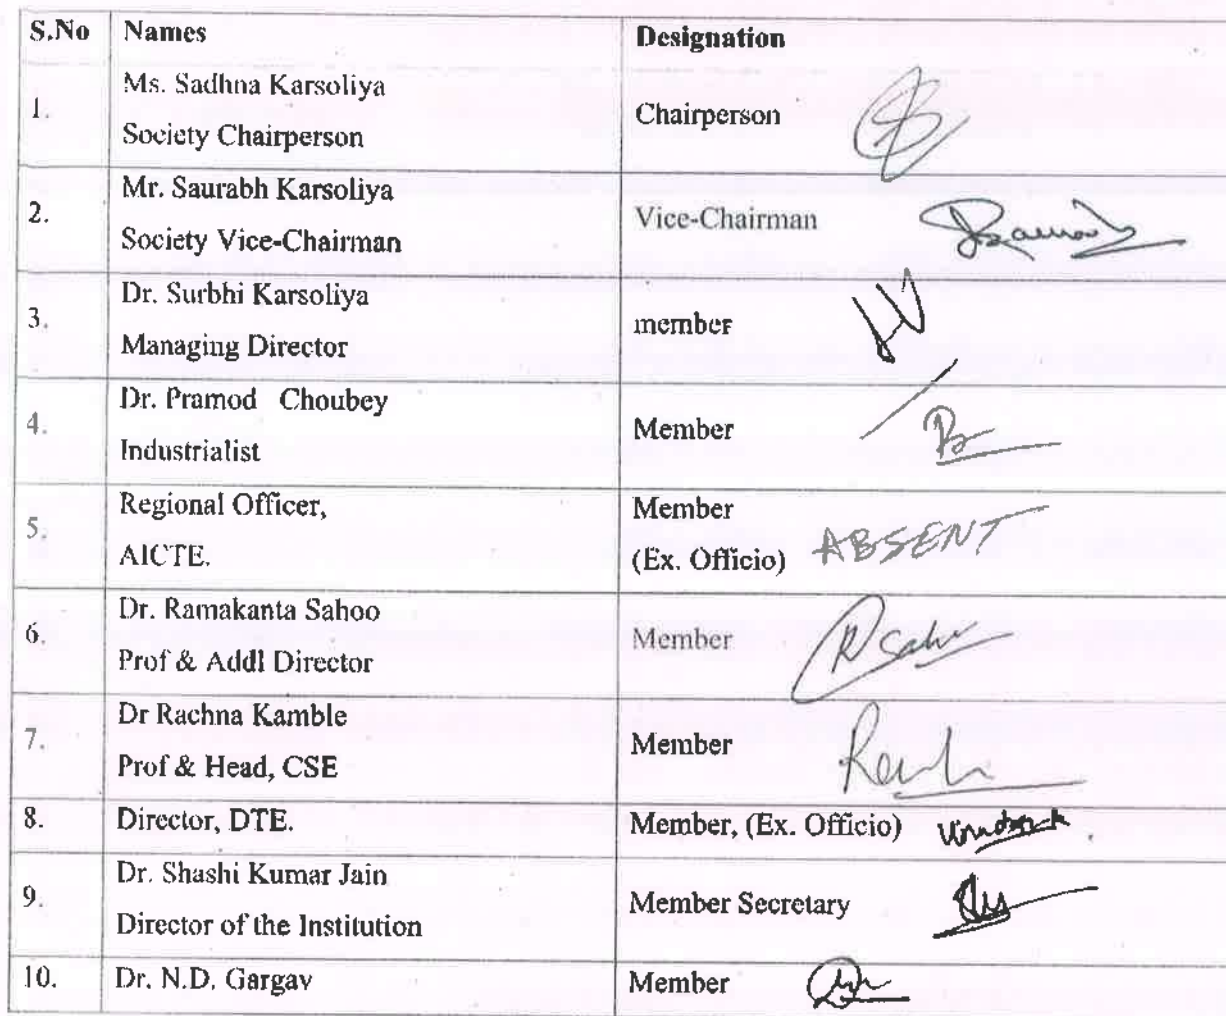 S.No Names Designation
1. Ms. Sadhna Karsoliya
Society Chairperson
Chairperson
2. Mr. Saurabh Karsoliya
Society Vice-Chairman
Vice-Chairman
3. Dr. Surbhi Karsoliya
Managing Director
member
4. Dr. Pramod Choubey
Industrialist
Member
5. Regional Officer,
AICTE.
Member
(Ex. Officio) ABSENT
6. Dr. Ramakanta Sahoo
Prof & Addl Director
Member
7. Dr Rachna Kamble
Prof & Head, CSE
Member
8. Director, DTE. Member, (Ex. Officio)
9. Dr. Shashi Kumar Jain
Director of the Institution
Member Secretary
10. Dr. N.D. Gargav Member